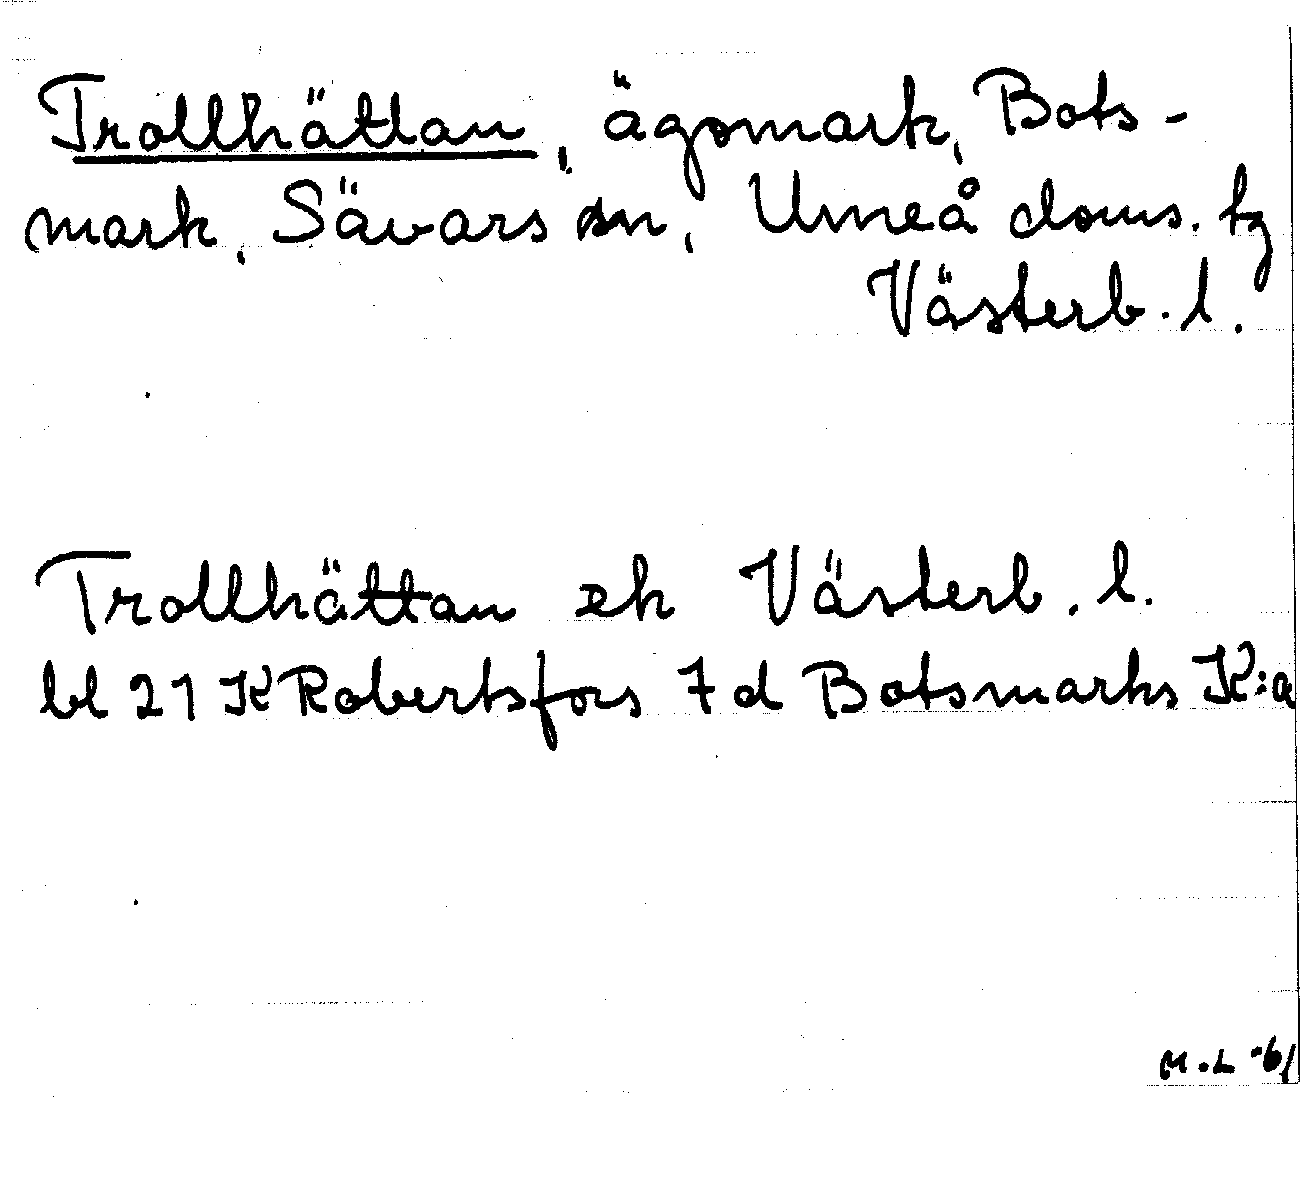 Trollhättan, ägomark, Bots-
mark, Sävars sn, Umeå doms. tg
Västerb. l.
Trollhättan ek Västerb. l.
bl 21 K Robertsfors 7 d Botsmarks K:a
M.L -61